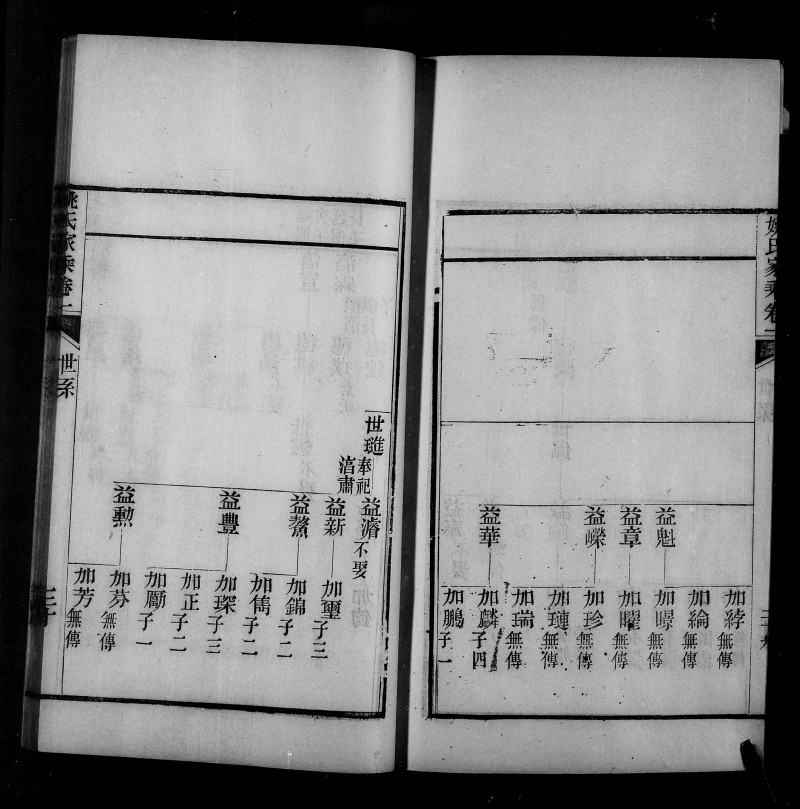 姚氏家乘卷一
益魁
益章
益嶸
益華
加綍無傳
加綸無傳
加暻無傳
加曜無傳
加珍無傳
加璉無傳
加瑞無傳
加麟子四
加鵬子一
世璡奉祀㴞肅
益濬不娶
益新
益鰲
益豐
益勳
加璽子三
加錦子二
加儁子二
加琛子三
加正子二
加勵子一
加芬無傳
加芳無傳
姚氏家乘卷一
世系
三十